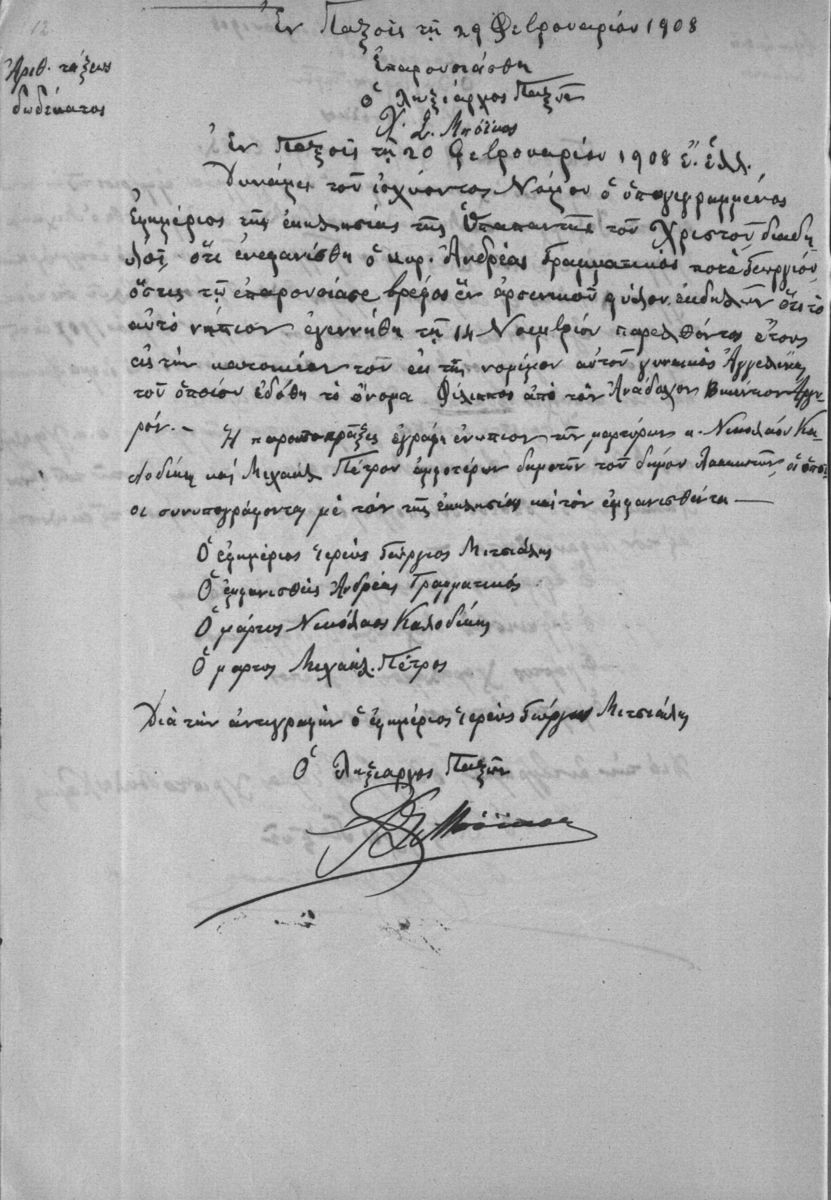 12
Ἐν Παξοῖς τῇ 29 Φεβρουαρίου 1908
Ἀριθ. τάξεως
δωδέκατος
Ἐπαρουσιάσθη
Ὁ Ληξίαρχος Παξῶν
Χ. Σ. Μπόϊκος
Ἐν Παξοῖς τῇ 20 Φεβρουαρίου 1908 ἔ. ἑλλ.
Δυνάμει τοῦ ἰσχύοντος Νόμου ὁ ὑπογεγραμμένος
Ἐφημέριος τῆς ἐκκλησίας τῆς Ὑπαπαντῆς τοῦ Χριστοῦ διαδη
λοῖ, ὅτι ἐνεφανίσθη ὁ κυρ. Ἀνδρέας Γραμματικὸς ποτὲ Γεωργίου,
ὅστις τῷ ἐπαρουσίασε βρέφος ἓν ἀρσενικοῦ φύλου, ἐκδηλῶν ὅτι τὸ
αὐτὸ νήπιον ἐγεννήθη τῇ 14 Νοεμβρίου παρελθόντος ἔτους
εἰς τὴν κατοικίαν του ἐκ τῆς νομίμου αὐτοῦ γυναικὸς Ἀγγελικῆς
τοῦ ὁποίου ἐδόθη τὸ ὄνομα Φίλιππος ἀπὸ τὸν Ἀνάδοχον Βικέντιον Ἀργυ
ρόν. – Ἡ παροῦσα πρᾶξις ἐγράφη ἐνώπιον τῶν μαρτύρων κ. Νικολάου Κα
λοδίκη καὶ Μιχαὴλ Πέτρου ἀμφοτέρων δημοτῶν τοῦ δήμου Λακκιωτῶν, οἱ ὁποῖ
οι συνυπογράφονται μὲ τὸν τῆς ἐκκλησίας καὶ τὸν ἐμφανισθέντα —
Ὁ ἐφημέριος Ἱερεὺς Γεώργιος Μιτσιάλης
Ὁ ἐμφανισθεὶς Ἀνδρέας Γραμματικός
Ὁ μάρτυς Νικόλαος Καλοδίκης
Ὁ μάρτυς Μιχαὴλ Πέτρος
Διὰ τὴν ἀντιγραφὴν ὁ ἐφημέριος Ἱερεὺς Γεώργιος Μιτσιάλης
Ὁ Ληξίαρχος Παξῶν
Χ Σ Μπόϊκος